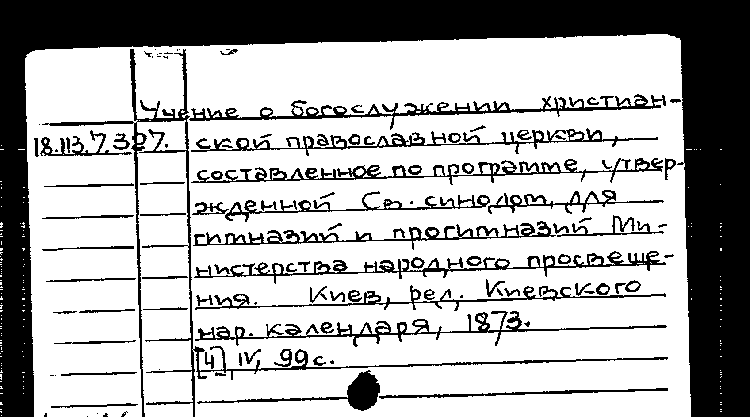 Учение о богослужении христиан-
18.113.7.327. ской православной церкви,
составленное по программе, утвер-
жденной Св. синодом, для
гимназий и прогимназий Ми-
нистерства народного просвеще-
ния. Киев, ред. Киевского
нар. календаря, 1873.
[4], IV, 99 с.